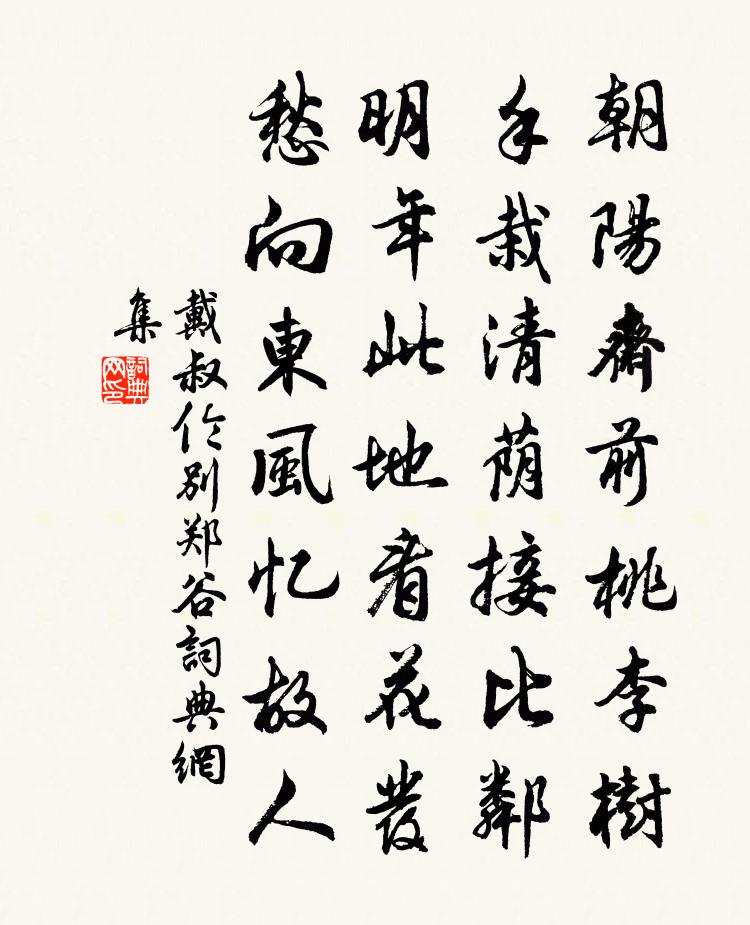 朝陽齋前桃李樹
手栽清荫接比鄰
明年此地看花發
愁向東風忆故人
戴叔伦别郑谷詞典網
集
詞典网印